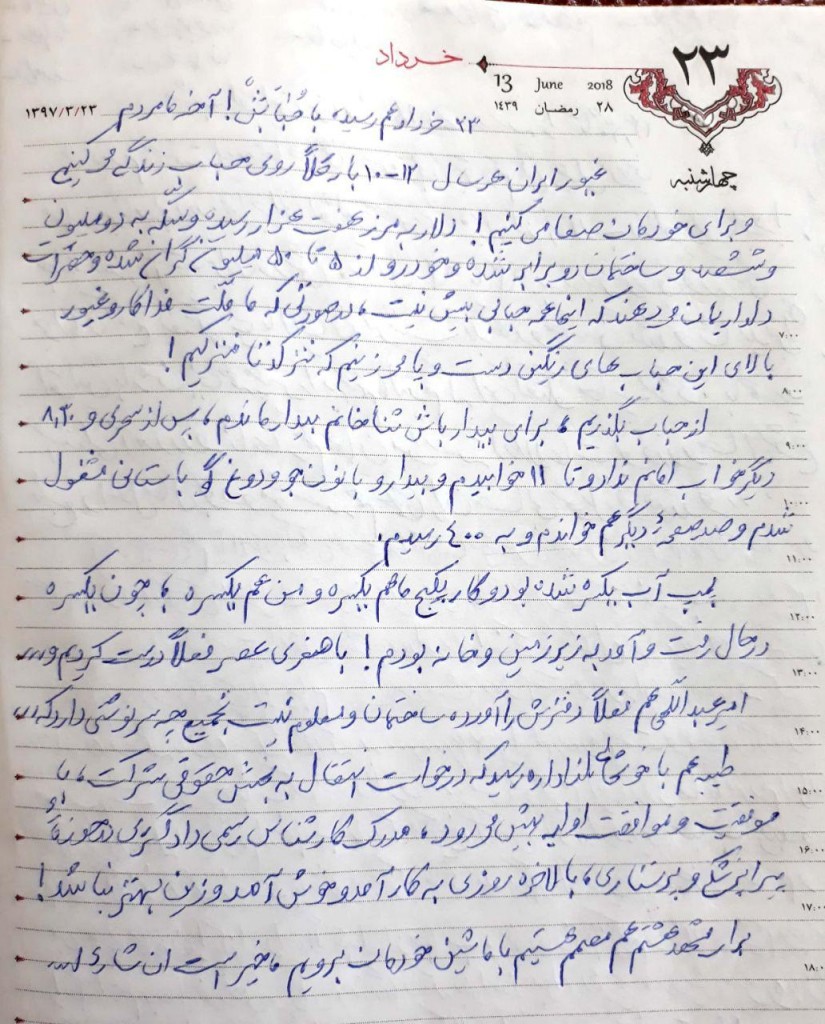 ۲۳
خرداد
13 June 2018
۲۸ رمضان ۱۴۳۹
چهارشنبه
۱۳۹۷/۳/۲۳
۲۳ خرداد هم رسید، با حُبابَش! آخه ما مردم
غیور ایران هر سال ۱۲-۱۰ بار کلاً روی حباب زندگی می کنیم
و برای خودمان صفا می کنیم! دلار به مرز هفت هزار رسیده و سکّه به دو ملیون
و ششصد و ساختمان دو برابر شده و خودرو از ۵ تا ۵۰ ملیون گران شده و حضرات
دلداریمان می دهند که اینها همه حبابی بیش نیست، در صورتی که ما ملّت فداکار و غیور
بالای این حباب های رنگین دست و پا می زنیم که
از حباب بگذریم، برای بیدار باش ثنا خانم بیدار ماندم، پس از سحری و ۸،۳۰
دیگر خواب امانم نداد و تا ۱۱ خوابیدم و بیدار و با نون جو و دوغ گو باستانی مشغول
شدم و صد صفحۀ دیگر هم خواندم و به ۴۰۰ رسیدم.
پمپ آب یکسره شده بود و کار پکیج ما هم یکسره و من هم یکسره، چون یکسره
در حال رفت و آمد به زیرزمین و خانه بودم! با صفری عصر فعلاً درست کردیم و...
امیر عبدالّلهی هم فعلاً دفترش را آورده ساختمان و معلوم نیست تجمیع چه سرنوشتی دارد که...
طیبه هم با خوشحالی از اداره رسید که درخواست انتقال به بخش حقوقی شرکت، با
موفقیت و موافقت اولیه پیش می رود، مدرک کارشناس رسمی دادگستری در حوزۀ
پیراپزشکی و پرستاری، بالاخره روزی به کار آمد و خوش آمد و زین بهتر نباشد!
برای مشهد هشتم هم مصمم هستیم با ماشین خودمان برویم، خیر است ان شاءا...
۷:۰۰
۸:۰۰
۹:۰۰
۱۰:۰۰
۱۱:۰۰
۱۲:۰۰
۱۳:۰۰
۱۴:۰۰
۱۵:۰۰
۱۶:۰۰
۱۷:۰۰
۱۸:۰۰